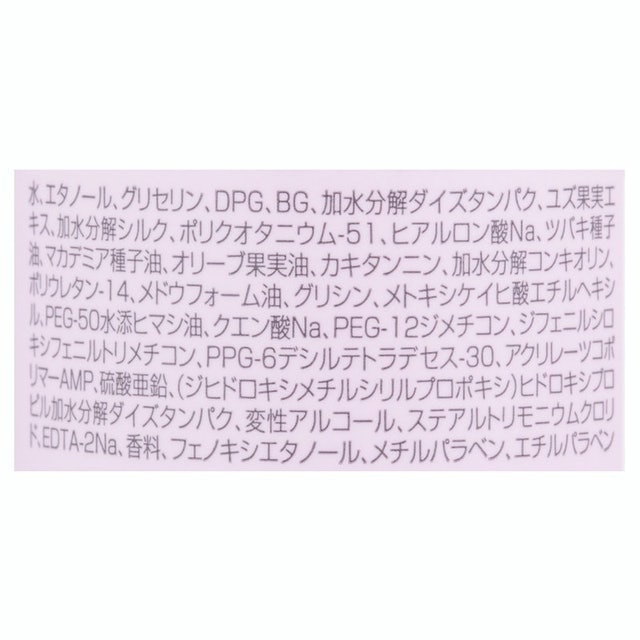 水、エタノール、グリセリン、DPG、BG、加水分解ダイズタンパク、ユズ果実エ
キス、加水分解シルク、ポリクオタニウム-51、ヒアルロン酸Na、ツバキ種子
油、マカデミア種子油、オリーブ果実油、カキタンニン、加水分解コンキオリン、
ポリウレタン-14、メドウフォーム油、グリシン、メトキシケイヒ酸エチルヘキシ
ル、PEG-50水添ヒマシ油、クエン酸Na、PEG-12ジメチコン、ジフェニルシロ
キシフェニルトリメチコン、PPG-6デシルテトラデセス-30、アクリレーツコポ
リマーAMP、硫酸亜鉛、(ジヒドロキシメチルシリルプロポキシ)ヒドロキシプロ
ピル加水分解ダイズタンパク、変性アルコール、ステアルトリモニウムクロリ
ド、EDTA-2Na、香料、フェノキシエタノール、メチルパラベン、エチルパラベン